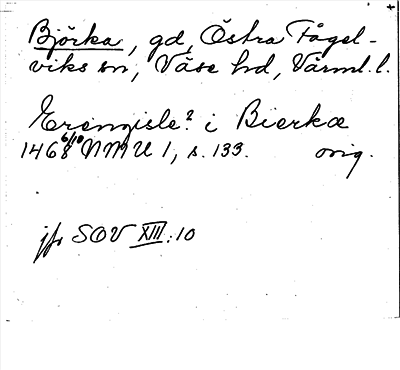 Björka, gd, Östra Fågel-
viks sn, Väse hd, Värml. l.
Erengisle? i Bierkæ
1468 6/10 NMU 1, s. 133. orig.
jfr SOV XIII:10